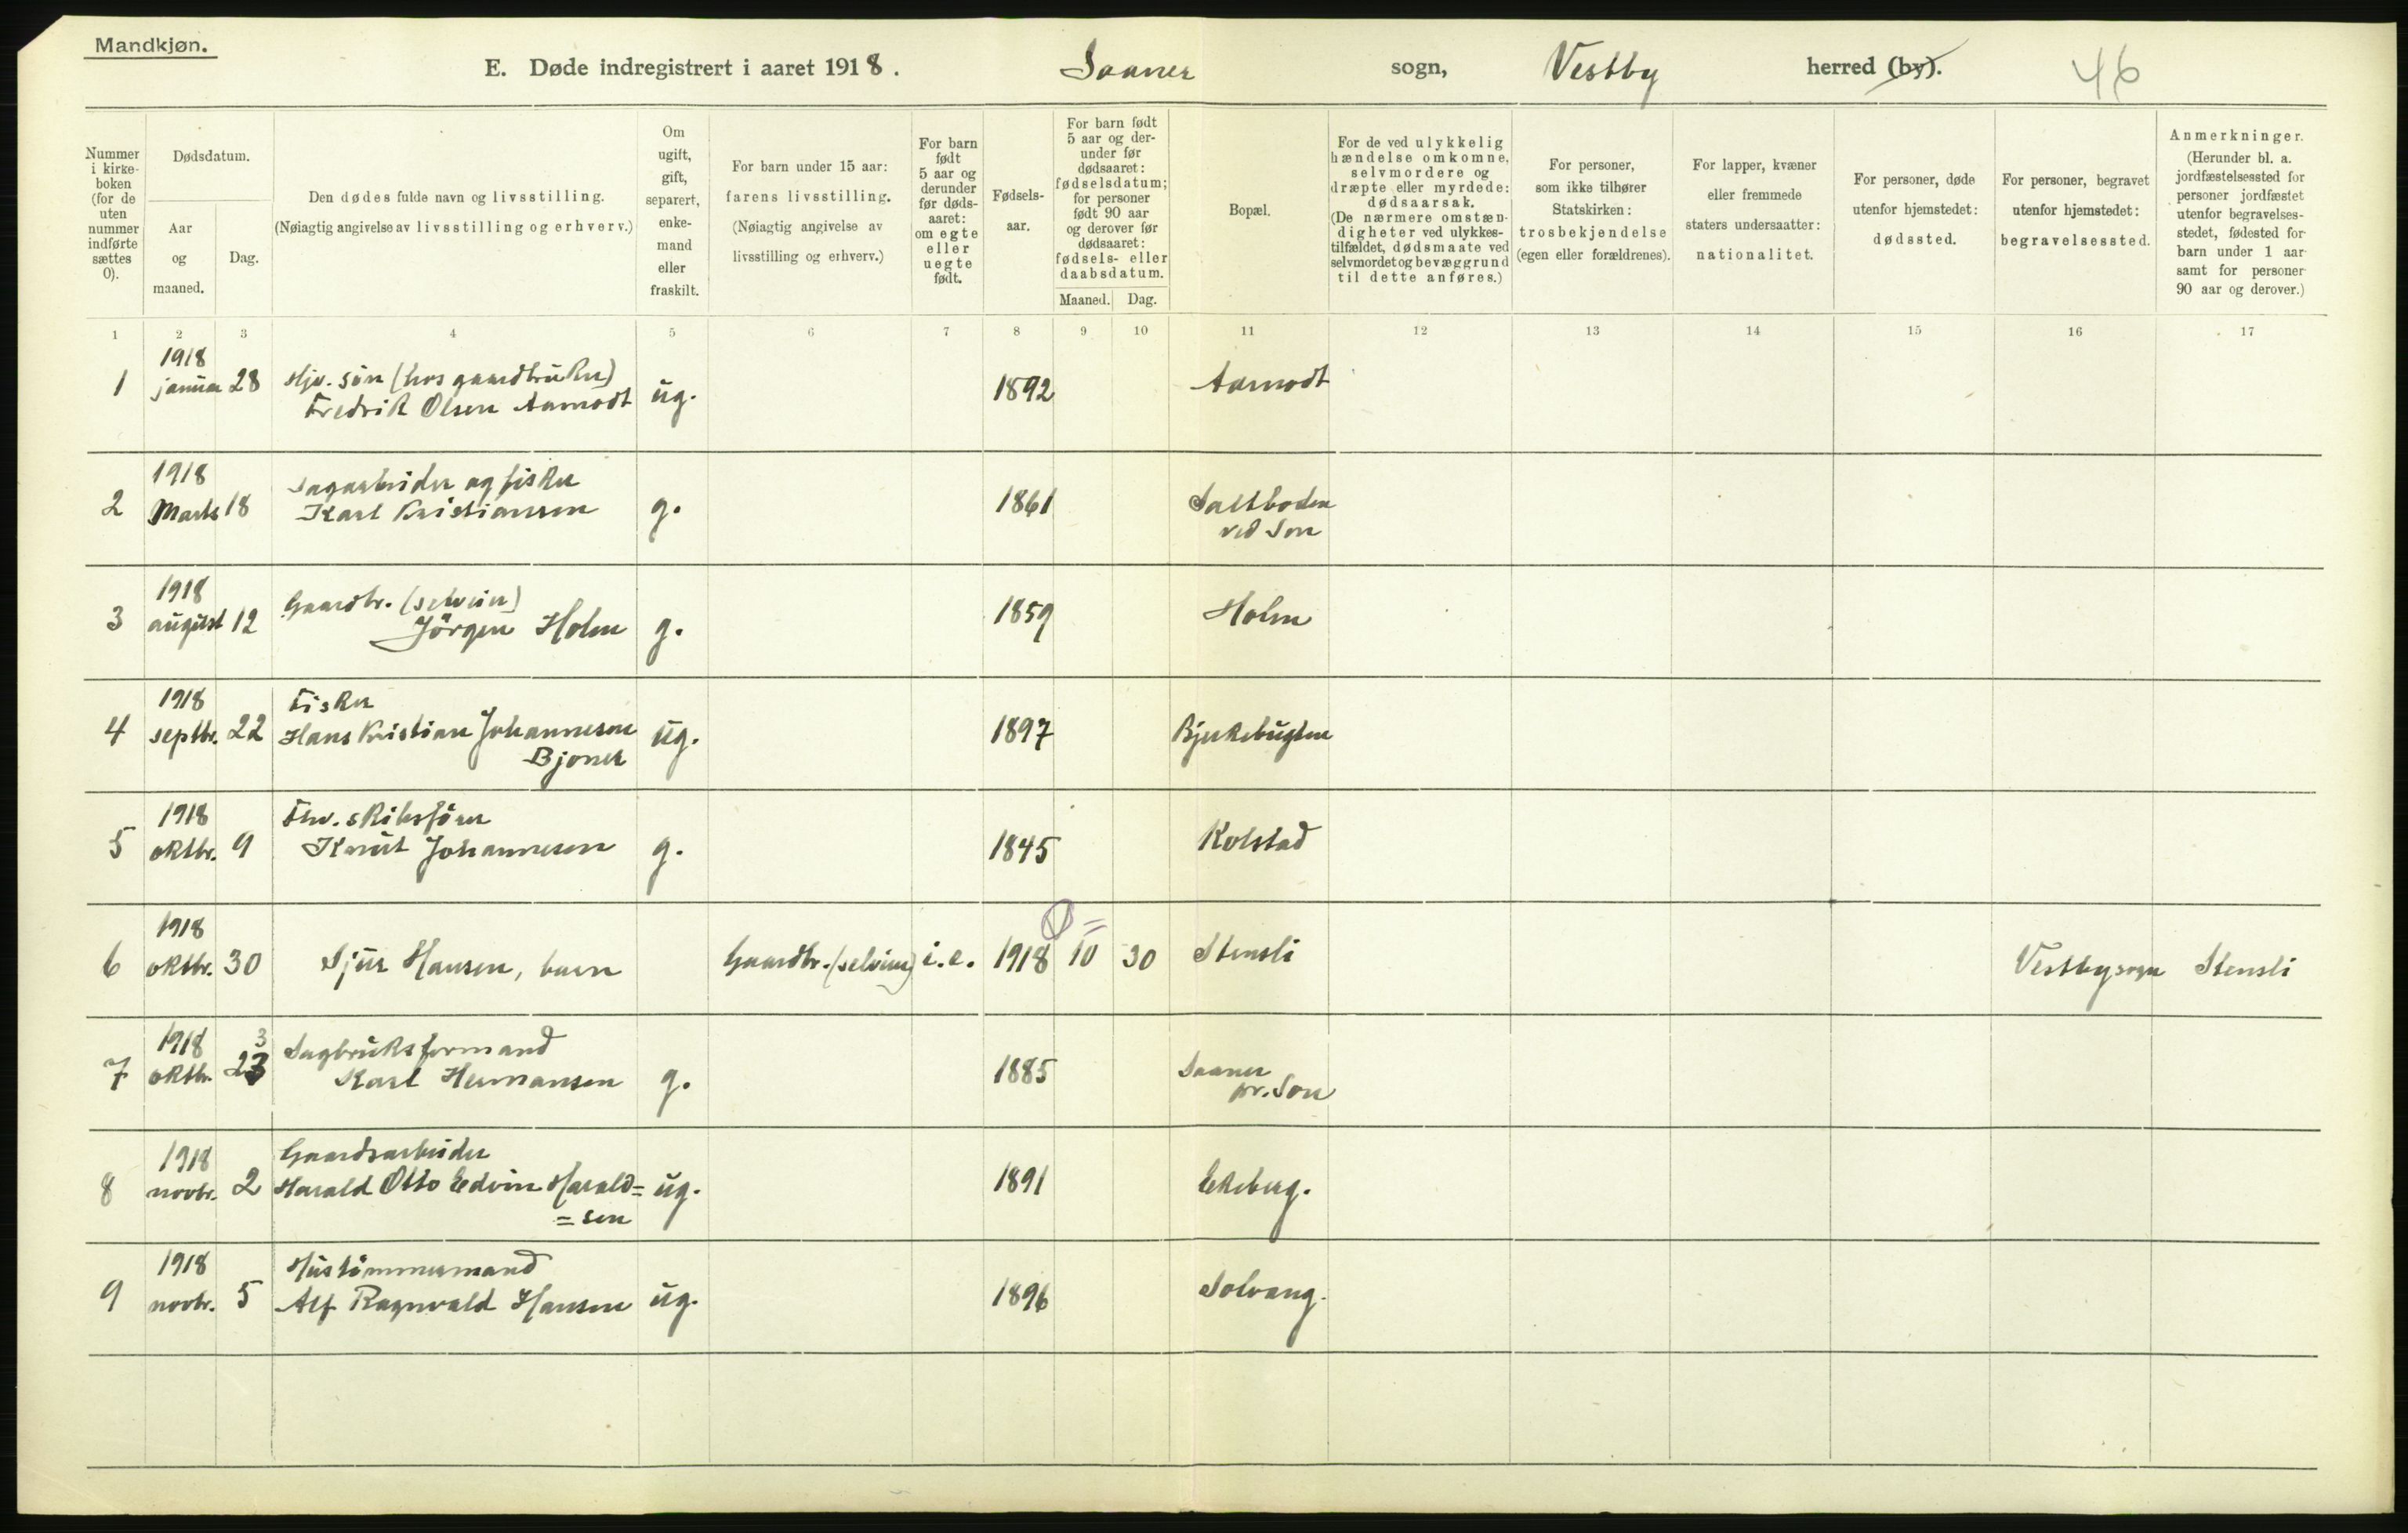 Mandkjøn.
E. Døde indregistrert i aaret 1918. Saaner sogn, Vestby herred (by). 46
Nummer i kirke-boken (for de uten nummer indførte sættes 0).
Dødsdatum.
Aar og maaned.
Dag.
Den dødes fulde navn og livsstilling.
(Nøiagtig angivelse av livsstilling og erhverv.)
Om ugift, gift, separert, enke-mand eller fraskilt.
For barn under 15 aar:
farens livsstilling.
(Nøiagtig angivelse av livsstilling og erhverv.)
For barn født 5 aar og derunder før døds-aaret: om egte eller uegte født.
Fødsels-aar.
For barn født 5 aar og der-under før dødsaaret: fødselsdatum; for personer født 90 aar og derover før dødsaaret: fødsels- eller daabsdatum.
Maaned. Dag.
Bopæl.
For de ved ulykkelig hændelse omkomne, selvmordere og dræpte eller myrdede: dødsaarsak. (De nærmere omstæn-digheter ved ulykkes-tilfældet, dødsmaate ved selvmordet og bevæggrund til dette anføres.)
For personer, som ikke tilhører Statskirken: trosbekjendelse (egen eller forældrenes).
For lapper, kvæner eller fremmede staters undersaatter: nationalitet.
For personer, døde utenfor hjemstedet: dødssted.
For personer, begravet utenfor hjemstedet: begravelsessted.
Anmerkninger.
(Herunder bl. a. jordfæstelsessted for personer jordfæstet utenfor begravelses-stedet, fødested for barn under 1 aar samt for personer 90 aar og derover.)
1 2 3 4 5 6 7 8 9 10 11 12 13 14 15 16 17
1918
1 januar 28 Hjv. søn (hos gaardbruker) ug. 1892 Aamodt
Fredrik Olsen Aamodt
1918
2 Marts 18 Sagarbeider og fisker g. 1861 Saltboden
Karl Kristiansen ved Son
1918
3 august 12 Gaardbr. (selveier) g. 1859 Holm
Jörgen Holm
1918
4 septbr. 22 Fisker ug. 1897 Bjerkebugten
Hans Kristian Johannesen
Bjoner
1918
5 oktbr. 9 Fhv. skibsfører g. 1845 Kolstad
Knut Johannesen
1918
6 oktbr. 30 Sjur Hansen, barn Gaardbr. (selveier) i.e. 1918 10 30 Stensli Vestby sogn Stensli
1918 3
7 oktbr. 23 Sagbruksformand g. 1885 Saaner
Karl Hermansen pr. Son
1918
8 novbr. 2 Gaardsarbeider ug. 1891 Ekeberg.
Harald Otto Edvin Harald=
=sen
1918
9 novbr. 5 Hustømmermand ug. 1896 Solvang.
Alf Ragnvald Hansen